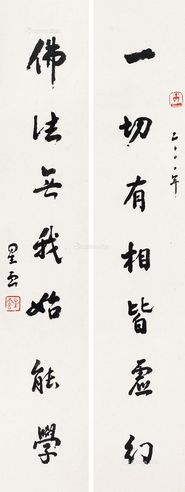 一切有相皆虛幻
二〇〇〇年
佛法無我始能學
星雲